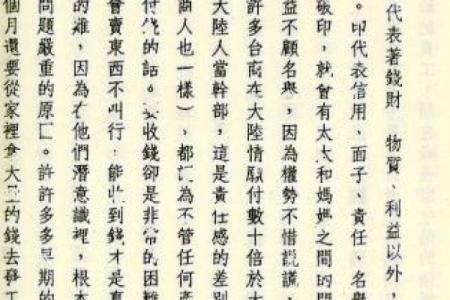 代表著錢財 物質、利益以外，
。印代表信用、面子、責任、名譽
破印，就會有太太和媽媽之間的
益不顧名譽，因為權勢不惜說謊，
許多台商在大陸情願付數十倍於
大陸人當幹部，這是責任感的差別
商人也一樣），都認為不管任何產
付代的話。要收錢卻是非常的困難
會賣東西不叫行，能收到錢才是真
的難，因為在他們潛意識裡，根本
問題嚴重的原因。許許多多早期的
個月還要從家裡拿大量的錢去發工